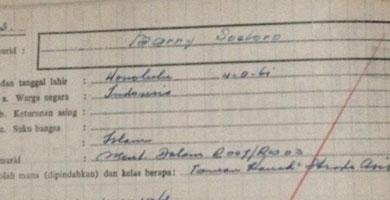 3.
urid : Barry Soetoro
dan tanggal lahir : Honolulu 4-8-61
a. Warga negara : Indonesia
b. Keturunan asing :
c. Suku bangsa :
: Islam
murid : Ment. Dalam R007/Rw03
olah mana (dipindahkan) dan kelas berapa: